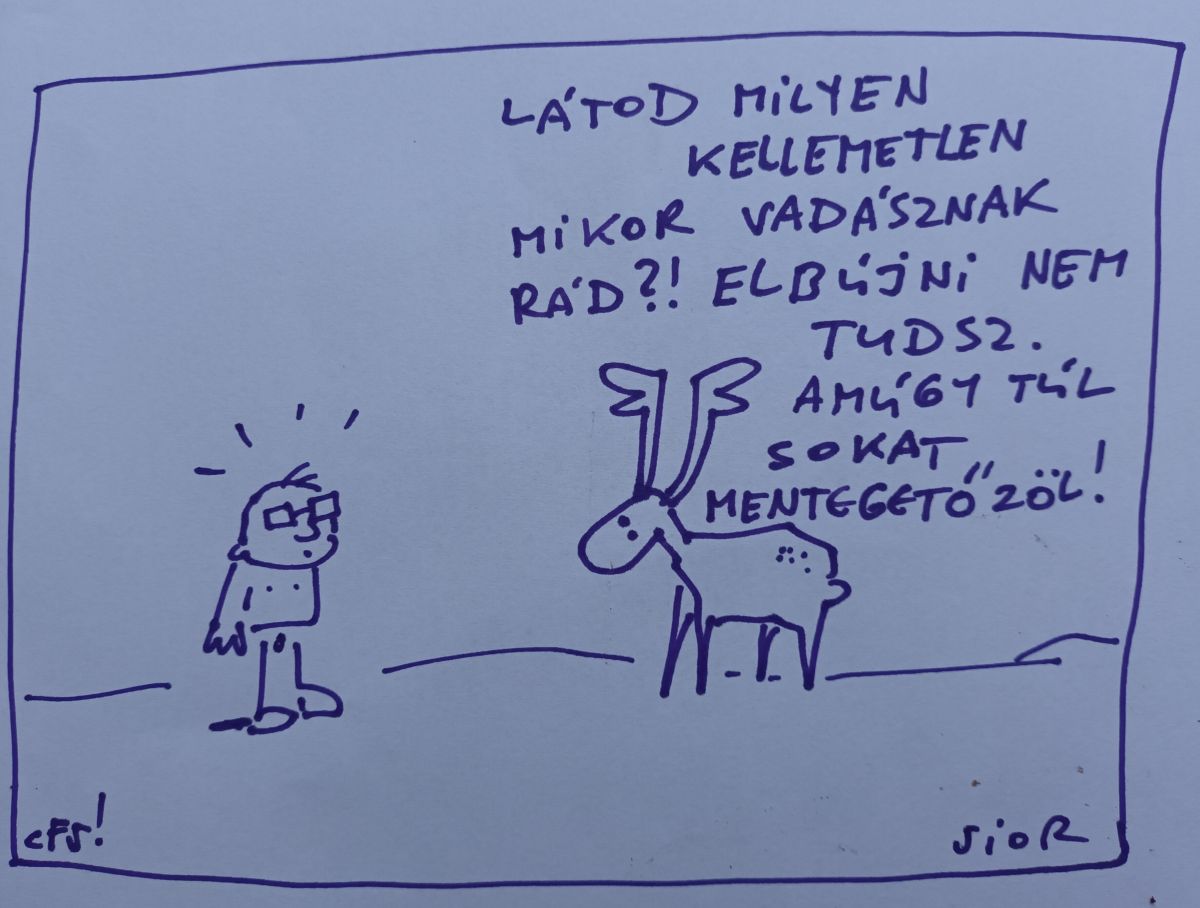 LÁTOD MILYEN
KELLEMETLEN
MIKOR VADÁSZNAK
RÁD?! ELBÚJNI NEM
TUDSZ.
AMÚGY TÚL
SOKAT
MENTEGETŐZÖL!
CFS!
SIOR